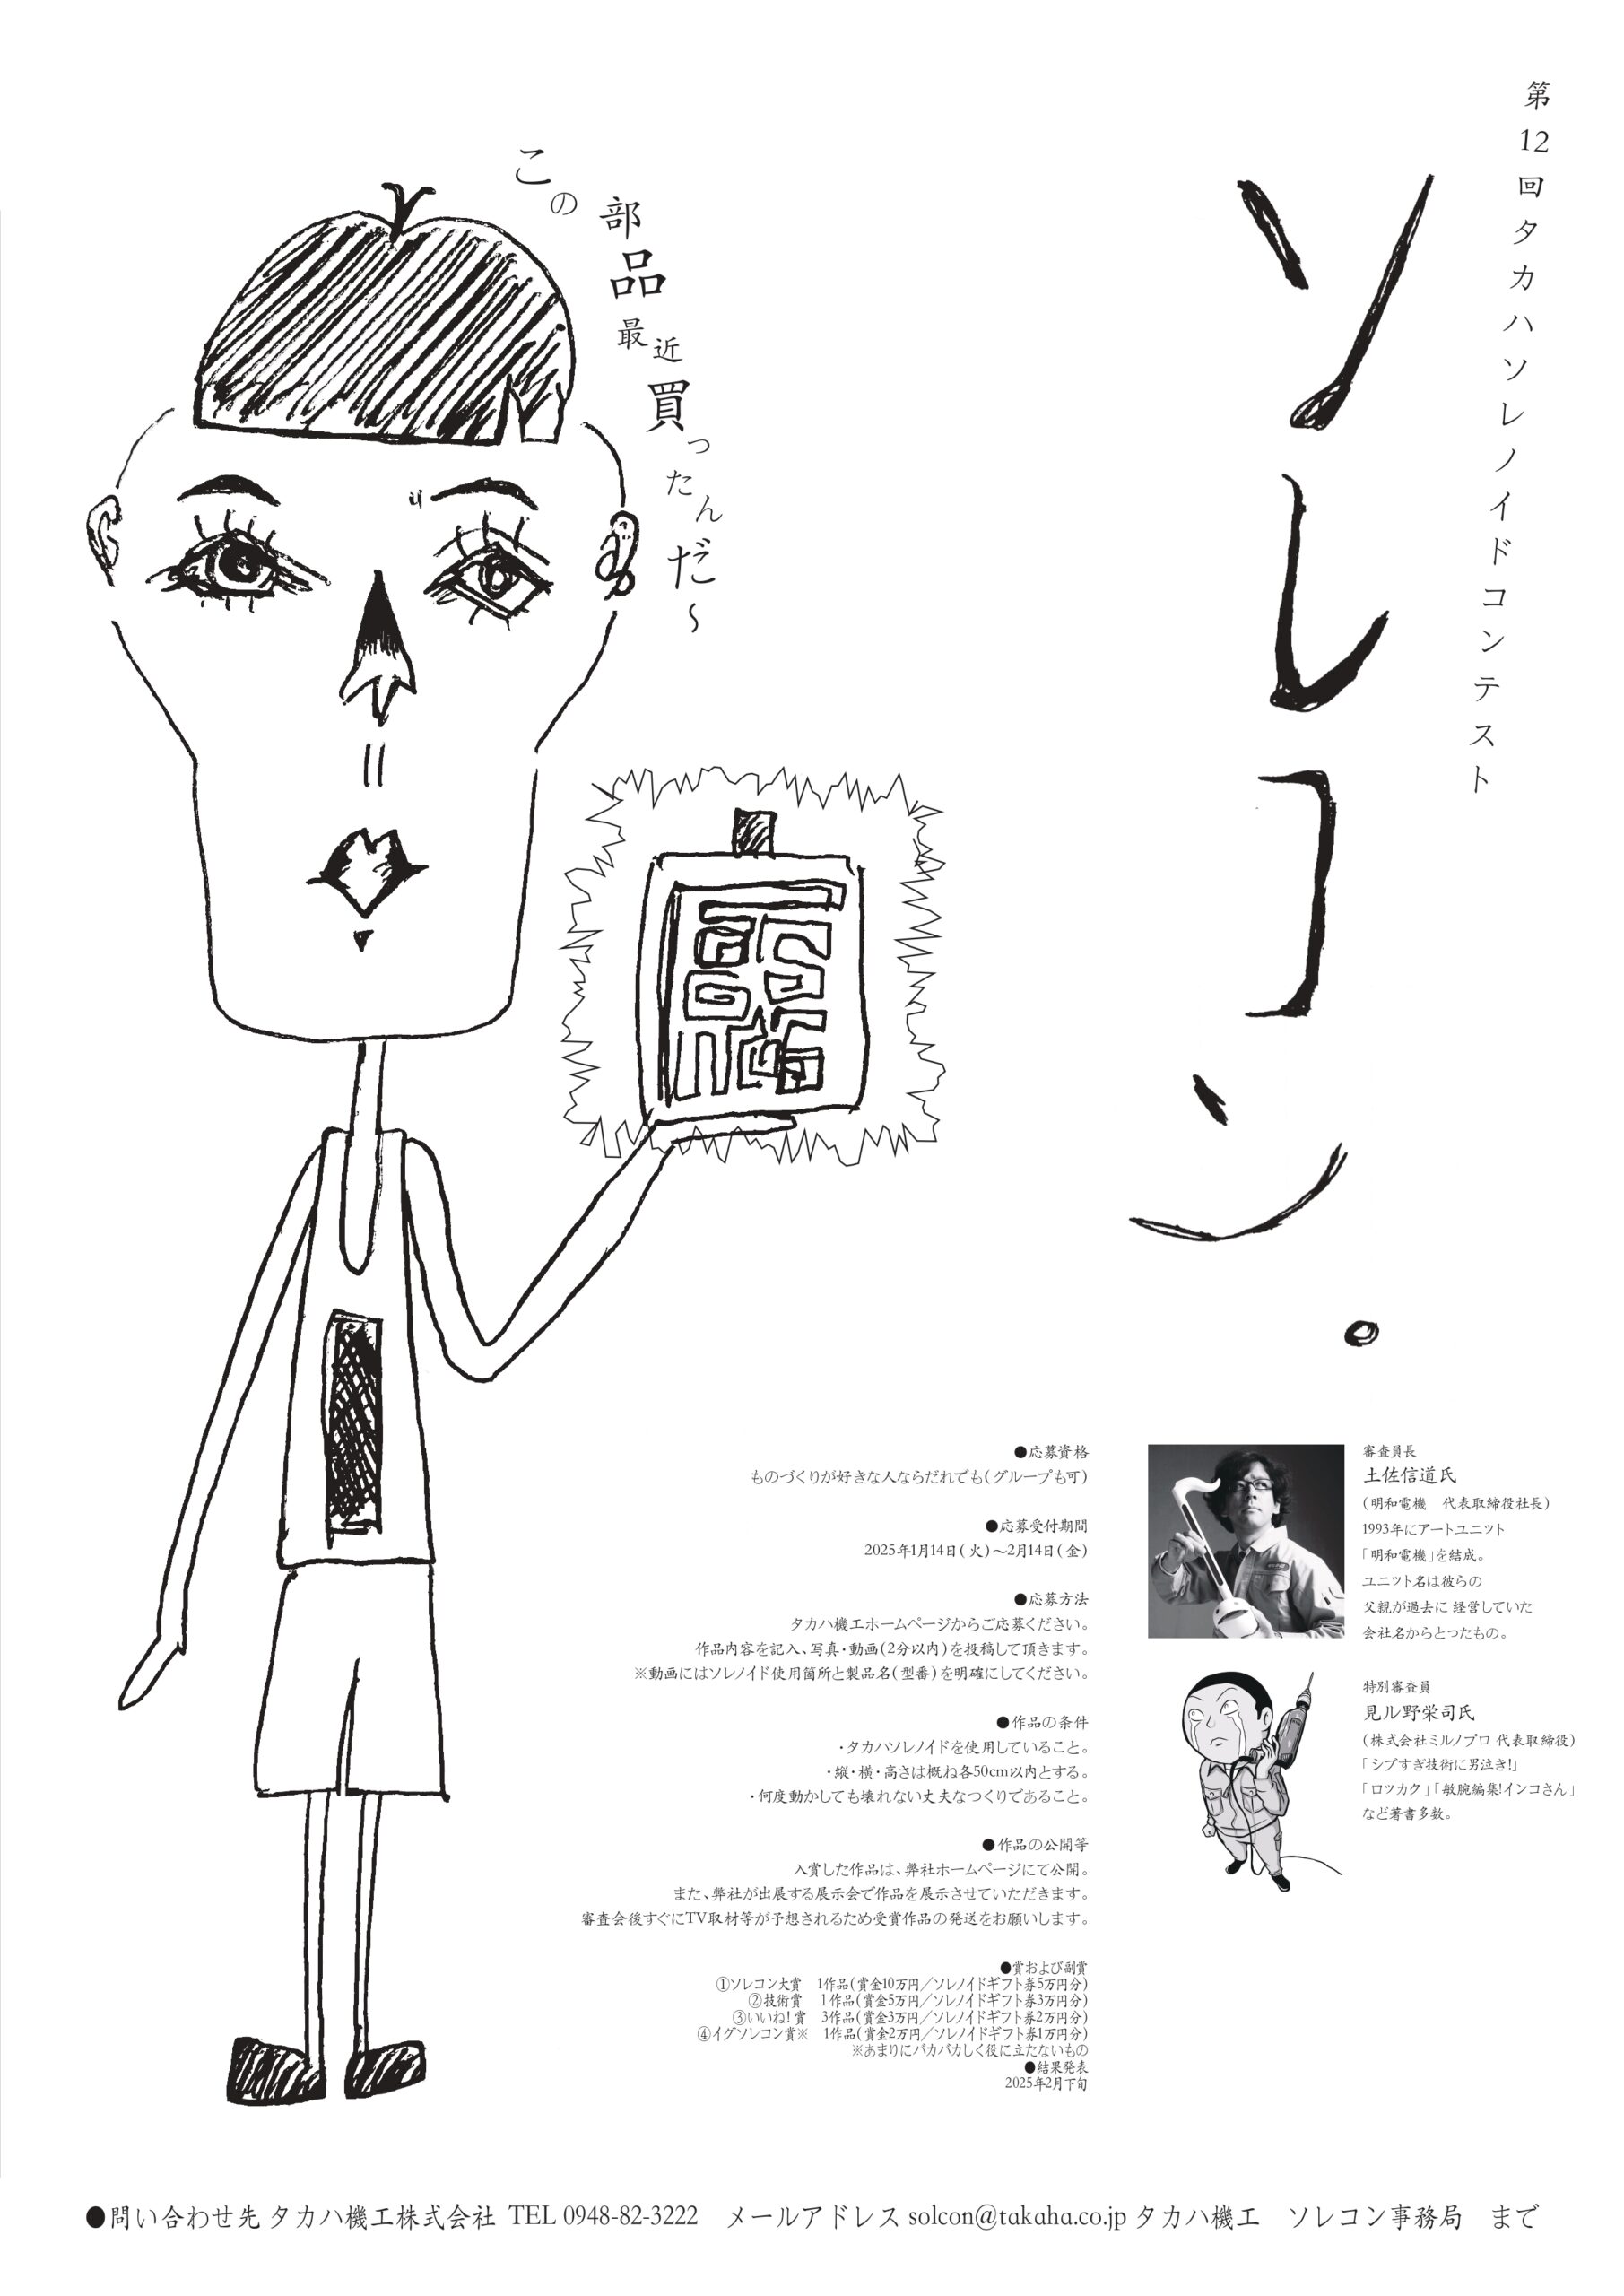 第12回タカハソレノイドコンテスト
ソレコン。
この部品最近買ったんだ～
●応募資格
ものづくりが好きな人ならだれでも(グループも可)
●応募受付期間
2025年1月14日(火)～2月14日(金)
●応募方法
タカハ機工ホームページからご応募ください。
作品内容を記入、写真・動画(2分以内)を投稿して頂きます。
※動画にはソレノイド使用箇所と製品名(型番)を明確にしてください。
●作品の条件
・タカハソレノイドを使用していること。
・縦・横・高さは概ね各50cm以内とする。
・何度動かしても壊れない丈夫なつくりであること。
●作品の公開等
入賞した作品は、弊社ホームページにて公開。
また、弊社が出展する展示会で作品を展示させていただきます。
審査会後すぐにTV取材等が予想されるため受賞作品の発送をお願いします。
●賞および副賞
①ソレコン大賞　1作品(賞金10万円／ソレノイドギフト券5万円分)
②技術賞　1作品(賞金5万円／ソレノイドギフト券3万円分)
③いいね!賞　3作品(賞金3万円／ソレノイドギフト券2万円分)
④イグソレコン賞※　1作品(賞金2万円／ソレノイドギフト券1万円分)
※あまりにバカバカしく役に立たないもの
●結果発表
2025年2月下旬
審査員長
土佐信道氏
(明和電機　代表取締役社長)
1993年にアートユニット
「明和電機」を結成。
ユニット名は彼らの
父親が過去に経営していた
会社名からとったもの。
特別審査員
見ル野栄司氏
(株式会社ミルノプロ 代表取締役)
「シブすぎ技術に男泣き!」
「ロツカク」「敏腕編集!インコさん」
など著書多数。
●問い合わせ先 タカハ機工株式会社 TEL 0948-82-3222　メールアドレス solcon@takaha.co.jp タカハ機工　ソレコン事務局　まで